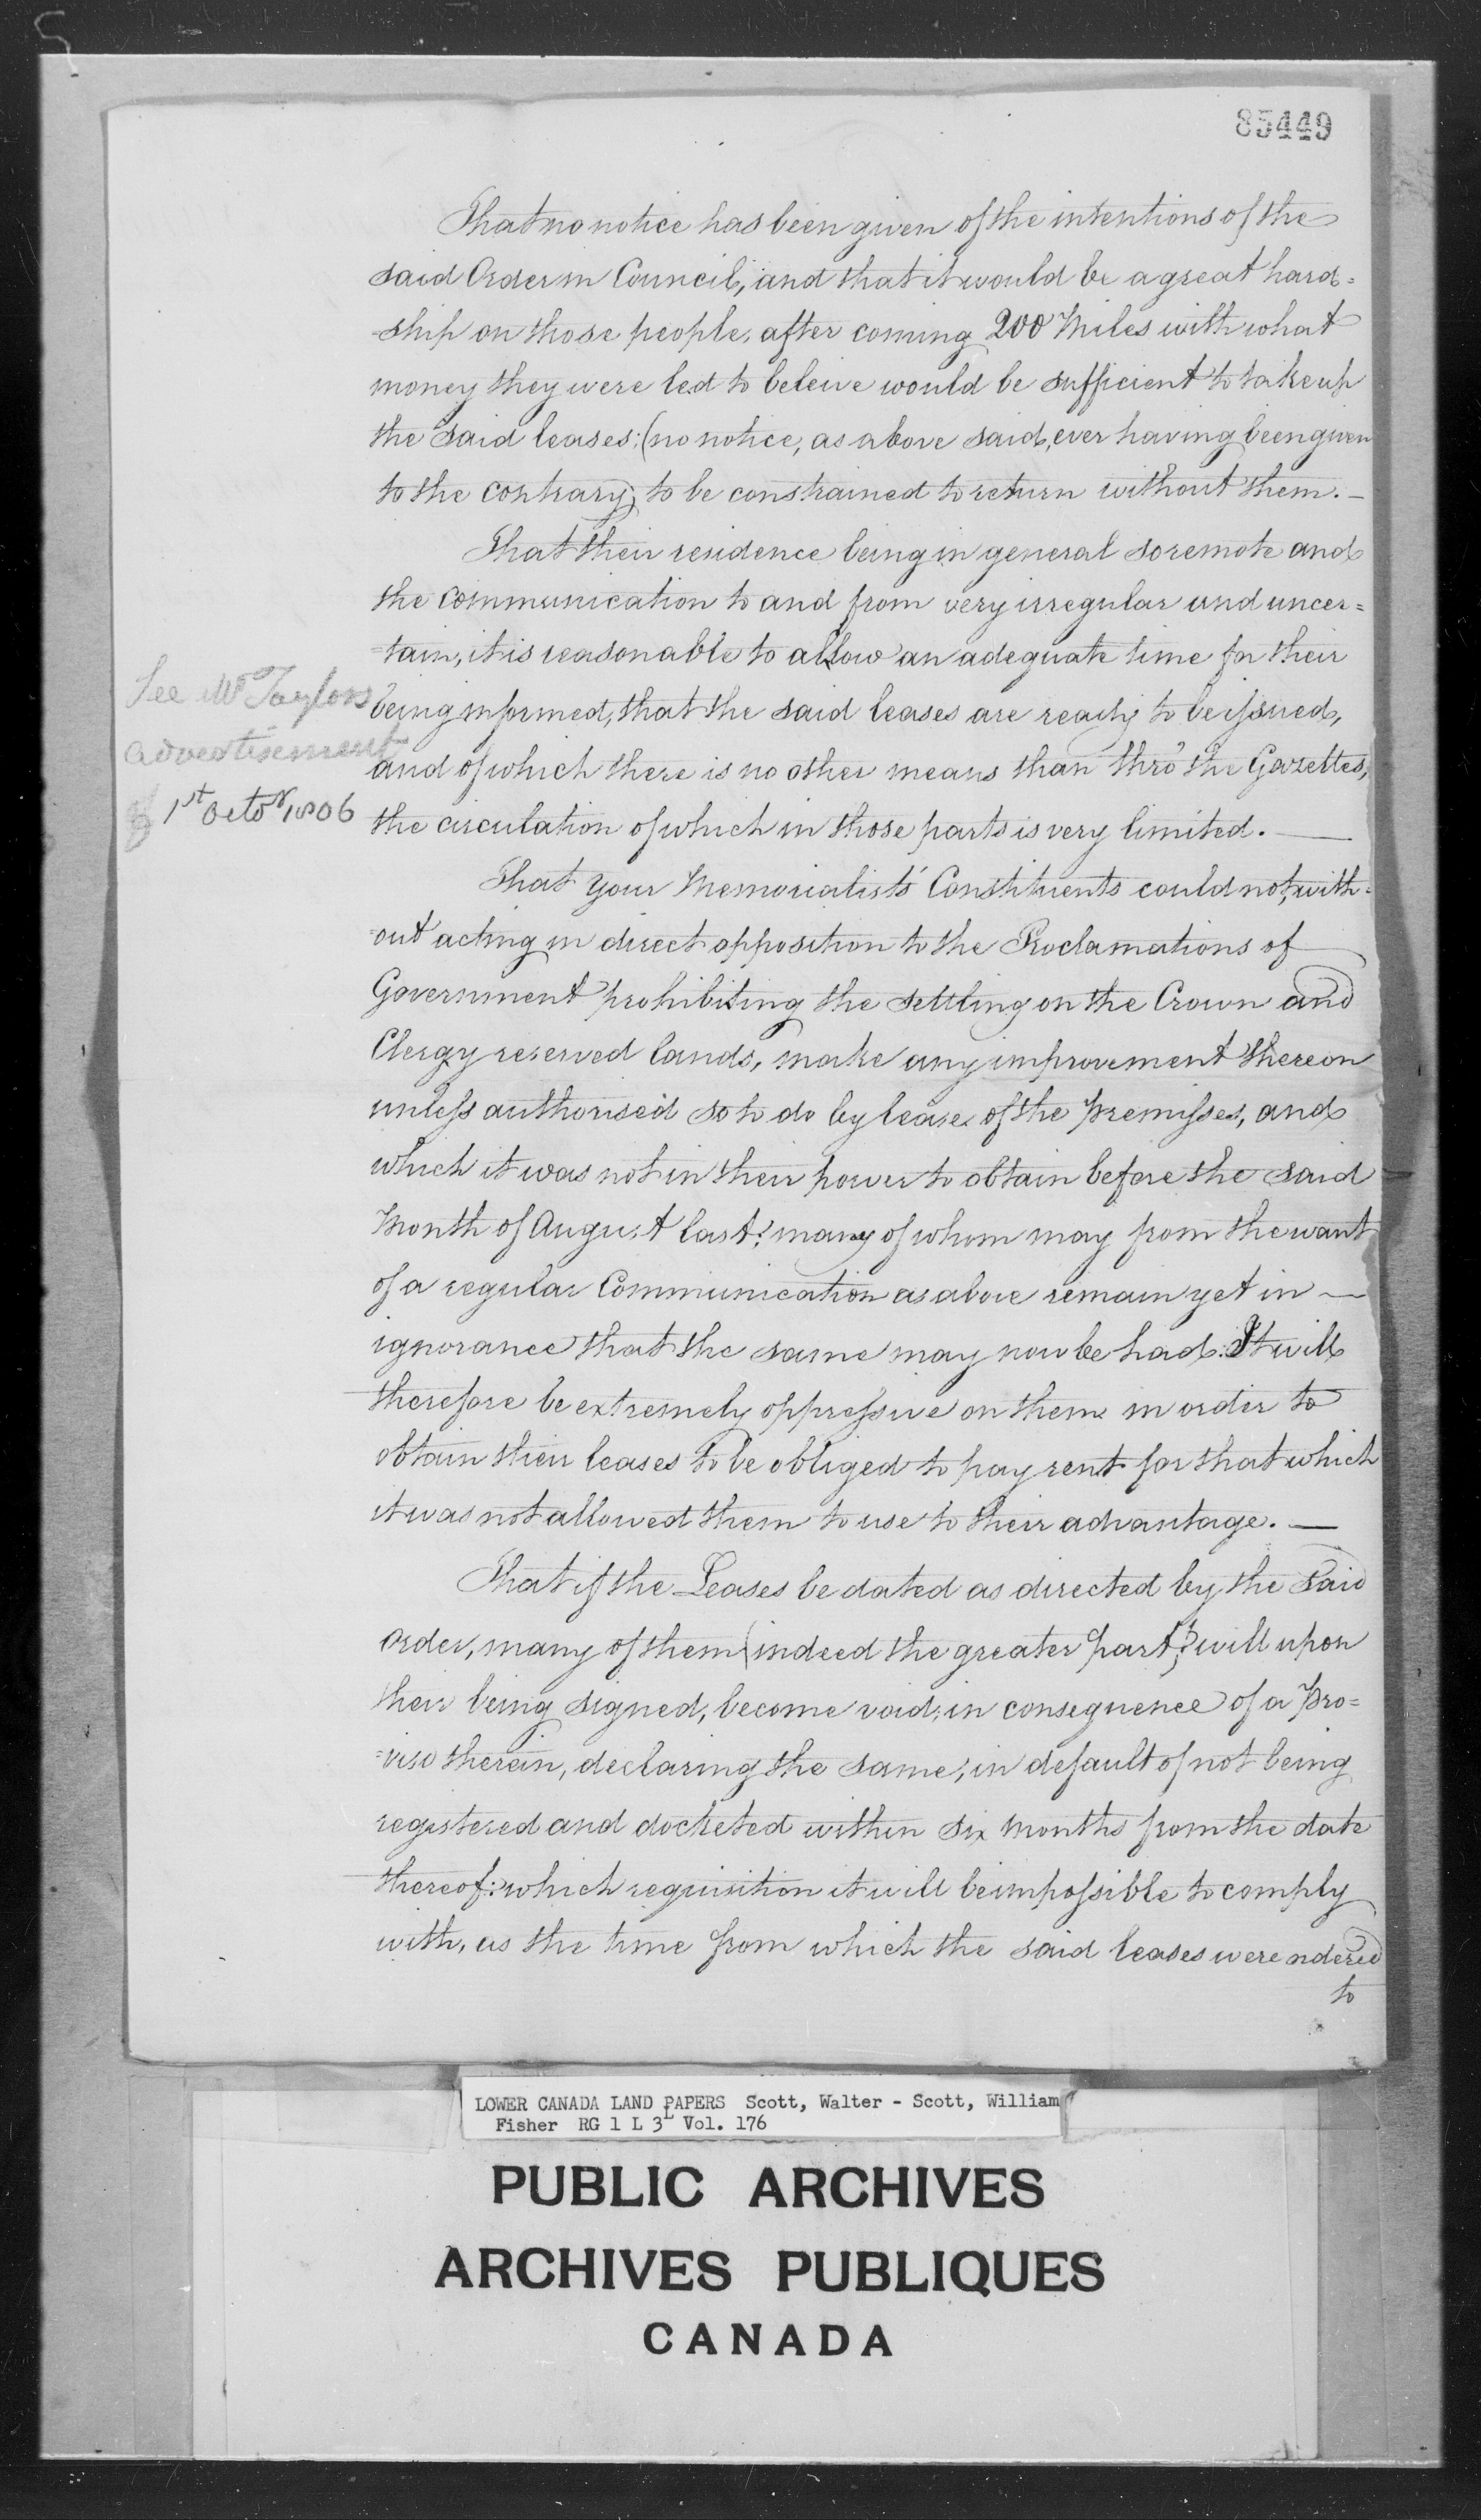 85449
That no notice has been given of the intentions of the
said Order in Council, and that it would be a great hard=
-ship on those people, after coming 200 Miles with what
money they were led to beleive would be sufficient to take up
the said leases: (no notice, as above said, ever having been given
to the contrary) to be constrained to return without them. —
That their residence being in general so remote and
the communication to and from very irregular and uncer=
=tain, it is reasonable to allow an adequate time for their
See Mr Taylors
advertisement
of 1st Octor 1806
being informed, that the said leases are ready to be issued,
and of which there is no other means than thro' the Gazettes,
the circulation of which in those parts is very limited. —
That your Memorialists' Constituents could not, with=
-out acting in direct opposition to the Proclamations of
Government prohibiting the settling on the Crown and
Clergy reserved lands, make any improvement thereon
unless authorised so to do by leases of the premisses, and
which it was not in their power to obtain before the said
Month of August last: many of whom may from the want
of a regular Communication as above remain yet in —
ignorance that the same may now be had. It will
therefore be extremely oppressive on them in order to
obtain their leases to be obliged to pay rent for that which
it was not allowed them to use to their advantage. —
That if the Leases be dated as directed by the said
order, many of them (indeed the greater part) will upon
their being signed, become void, in consequence of a pro=
=viso therein, declaring the same, in default of not being
registered and docketed within six months from the date
thereof: which requisition it will be impossible to comply
with, as the time from which the said leases were ordered
to
LOWER CANADA LAND PAPERS Scott, Walter - Scott, William
Fisher RG 1 L 3L Vol. 176
PUBLIC ARCHIVES
ARCHIVES PUBLIQUES
CANADA